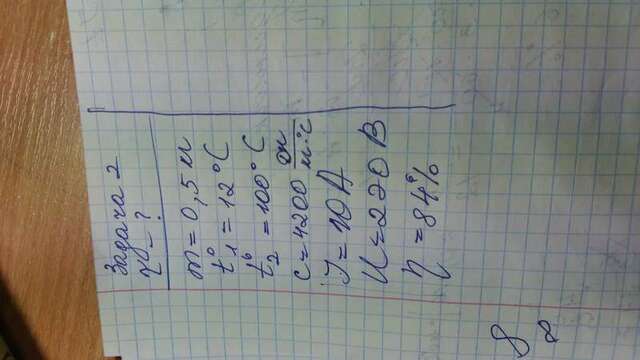 Задача 2
τ - ?
m = 0,5 кг
t°₁ = 12 °C
t°₂ = 100 °C
c = 4200 Дж/кг·°C
J = 10 A
U = 220 В
η = 84%
8
8